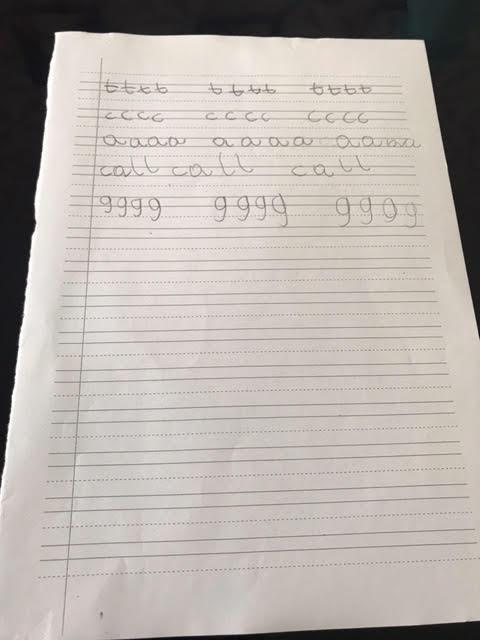 tttt tttt tttt
cccc cccc cccc
aaaa aaaa aaaa
call call call
gggg gggg gggg